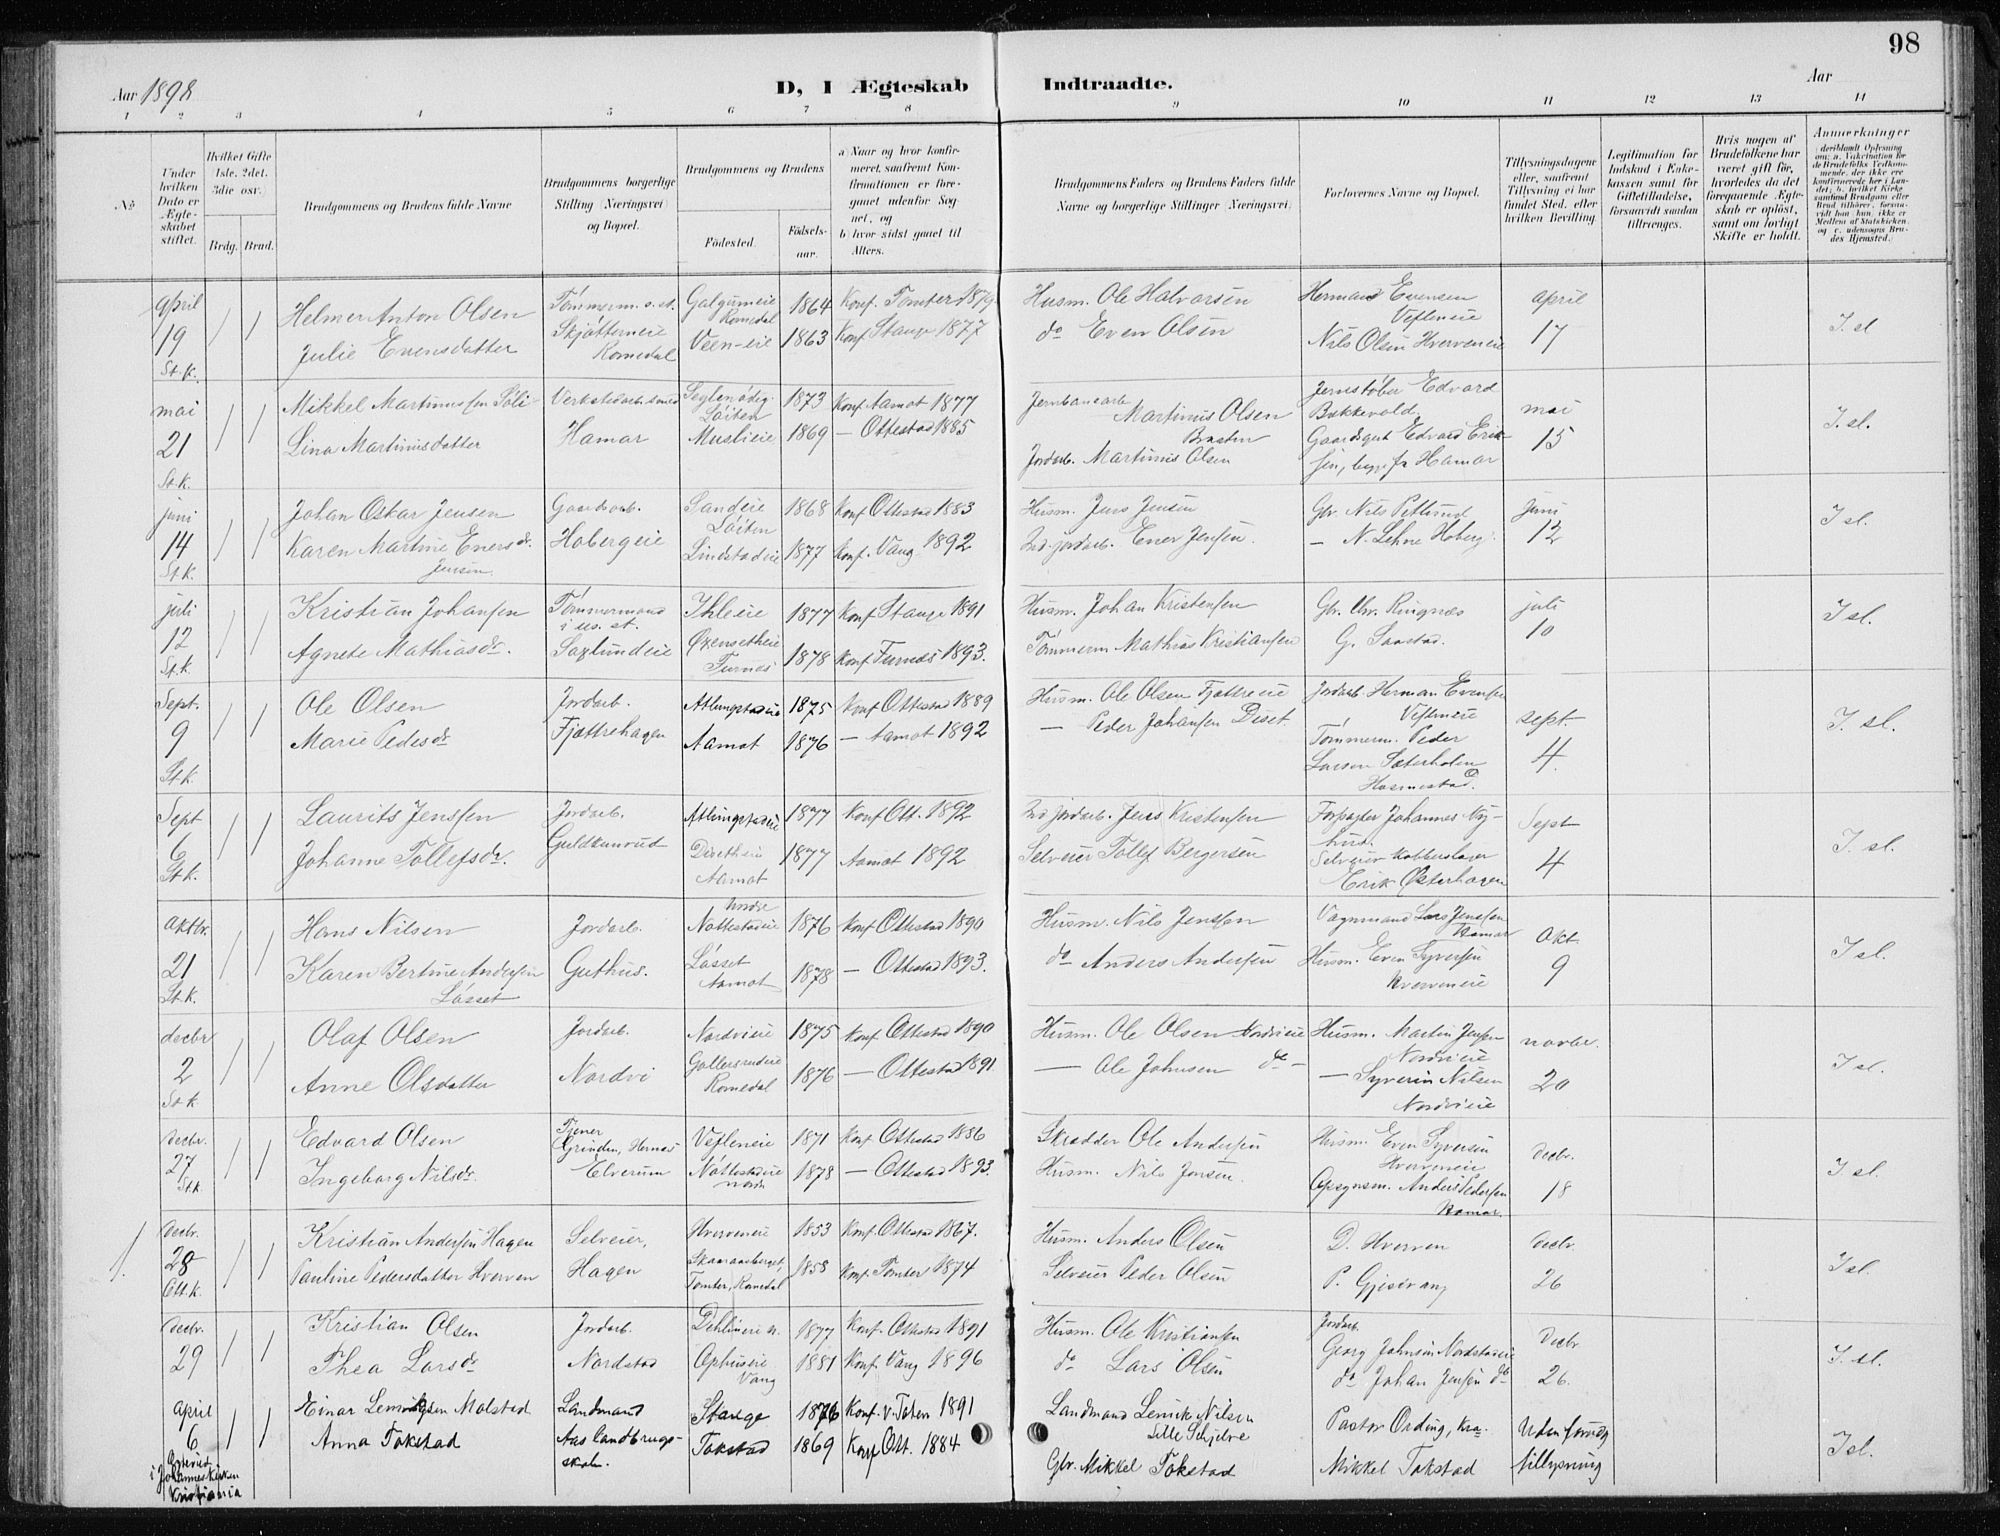 98
Aar 1898
D, I Ægteskab
Indtraadte.
Aar
1 2 3 4 5 6 7 8 9 10 11 12 13 14
No
Under hvilken Dato er Ægteskabet stiftet.
Hvilket Gifte 1ste. 2det. 3die osv.
Brdg. Brud.
Brudgommens og Brudens fulde Navne
Brudgommens borgerlige Stilling (Næringsvei) og Bopæl.
Brudgommens og Brudens
Födested.
Födsels-aar.
a) Naar og hvor konfirmeret, saafremt Konfirmationen er foregaaet udenfor Sognet, og b) hvor sidst gaaet til Alters.
Brudgommens Faders og Brudens Faders fulde Navne og borgerlige Stillinger (Næringsvei)
Forlovernes Navne og Bopæl.
Tillysningsdagene eller, saafremt Tillysning ei har fundet Sted, efter hvilken Bevilling
Legitimation for Indskud i Enkekassen samt for Giftetilladelse, forsaavidt saadan tiltrænges.
Hvis nogen af Brudefolkene har været gift før, hvorledes da det foregaaende Ægteskab er oplöst, samt om lovligt Skifte er holdt.
Anmerkninger
April 19 St.k. 1 1
Helmer Anton Olsen
Julie Evensdatter
Tömmerm. s. st.
Skjötterneie
Romedal
Romedal 1864
Veen-eie 1863
Konf. Tomter 1879
Konf Stange 1877
Husm. Ole Halvorsen
do Even Olsen
Herman Evensen
Vefleneie
Nils Olsen Hverveneie
April 17
I. sl
mai 21 St.k. 1 1
Mikkel Martinussen Söli
Lina Martinusdatter
Hamar
Löiten 1873
Muslieie 1869
Konf Aamot 1877
— Ottestad 1885
Jernbanearb
Martinus Olsen
Braten
Jordarb. Martinus Olsen
Jernstöber Edvard
Bækkevold
Gaardsgut Edvard Erik-
sen, begge fr Hamar
mai 15
I. sl.
juni 14 St.k. 1 1
Johan Oskar Jensen
Karen Martine Enersdr.
Jensen
Gaardsarb.
Hobergeie
Sandeie
Löiten 1868
Lindstadeie 1877
Konf Ottestad 1883
Konf. Vang 1892
Husm. Jens Jensen
Ind. jordarb. Ener Jensen.
Gbr. Nils Petlund
— N. Lehne Hoberg
juni 12
I sl.
juli 12 St.k. 1 1
Kristian Johansen
Agnete Mathiasdr.
Tömmermand
i us. st.
Saglundeie
Ihleeie 1877
Furnes 1878
Konf Stange 1891
Konf Furnes 1893.
Husm. Johan Kristensen
Tömmerm Mathias Kristiansen
Gbr. Chr. Ringnæs
G. Saastad.
juli 10
I sl.
Sept. 9 St.k. 1 1
Ole Olsen
Marie Pedersdr
Jordarb.
Fjættrehagen
Atlungstadeie 1875
Aamot 1876
Konf Ottestad 1889
— Aamot 1892
Husm. Ole Olsen Fjættreeie
— Peder Johansen Diset
Jordarb. Herman Evensen
Vefleneie
Tömmerm. Peder
Larsen Sæterholen
Hosmestad.
sept. 4.
I. sl.
Sept 6 St.k. 1 1
Laurits Jenssen
Johanne Tollefsdr.
Jordarb.
Guldkunrud
Atlungstadeie 1877
Aamot 1877
Konf Ott. 1892
Aamot 1892
Ind jordarb. Jens Kristensen
Selveier Tollef Bergersen
Forpagter Johannes Ny-
hus.
Selveier Kobberslager
Erik Østerhagen
Sept 4
I. sl.
Oktbr. 21 St.k. 1 1
Hans Nilsen
Karen Bertine Andersen
Lösset
Jordarb.
Guthus.
Nordre
Nøttestadeie 1876
Lösset
Aamot 1878
Konf Ottestad 1890
— Ottestad 1893.
Husm. Nils Jenssen
do Anders Andersen
Vognmand Lars Jenssen
Hamar
Husm. Even Syversen
Hverveneie
Okt. 9
I sl.
decbr 2 St.k 1 1
Olaf Olsen
Anne Olsdatter
Jordarb.
Nordvi
Nordvieie 1875
Romedal 1876
Konf Ottestad 1890
— Ottestad 1891
Husm. Ole Olsen Nordvieie
— Ole Johnsen do —
Husm. Martin Jensen
Nordvieie
— Syverin Nilsen
Nordvieie
novbr. 20
I sl.
Decbr. 27 St.k. 1 1
Edvard Olsen
Ingeborg Nilsdr.
Tjener
Grinden, Hernes
Elverum
Vefleneie 1871
Nøttestadeie
nordre 1878
Konf Ottestad 1886
— Ottestad 1893.
Skrædder Ole Andersen
Husm. Nils Jensen.
Husm. Even Syversen
Hverveneie
Opsynsm. Anders Pedersen
Hamar.
Decbr. 18
I sl.
1.
Decbr. 28 Ott.k 1 1
Kristian Andersen Hagen
Pauline Pedersdatter Hverven
Selveier,
Hagen
Hverveneie 1853
Skaaraasberget,
Tomter, Romedal 1858
Konf Ottestad 1867.
Konf Tomter 1874
Husm. Anders Olsen
Selveier Peder Olsen
D. Hverven
P. Gjestvang
Decbr. 26
I sl.
Decbr. 29 1 1
Kristian Olsen
Thea Larsdr
Jordarb.
Nordstad
Dehlineie 1877
Ophuseie
Vang 1881
Konf. Ottestad 1891
Konf Vang 1896
Husm. Ole Kristiansen
do Lars Olsen
Jordarb.
Georg Johnsen Nordstadeie
do Johan Jensen do
Decbr 26.
I. sl.
April 6
i Johanneskirken
Kristiania 1 1
Einar Lemiksen Molstad
Anna Tokstad
Landmand
Aas landbrugs-
skole.
Stange 1876
Tokstad 1869
Konf. v. Toten 1891
Konf Ott. 1884
Landmand Lemik Nilsen
Lille Schjelve
Gbr. Mikkel Tokstad
Pastor Ording, Kra.
Mikkel Tokstad
Uden forudg
tillysning
I sl.